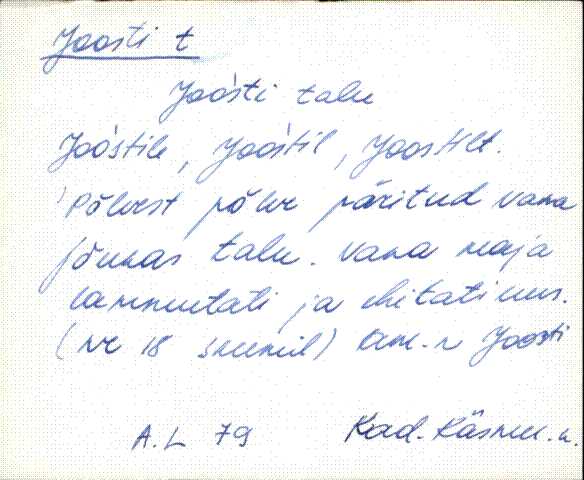 Joosti t
Joośti talu
Joośtile, Joośtil, Joostilt.
Põlvest põlve päritud vana
jõukas talu. Vana maja
lammutati ja ehitati uus.
(nr 18 skeemil) km-n Joosti
A.L 79 Kad. Käsmu.k.